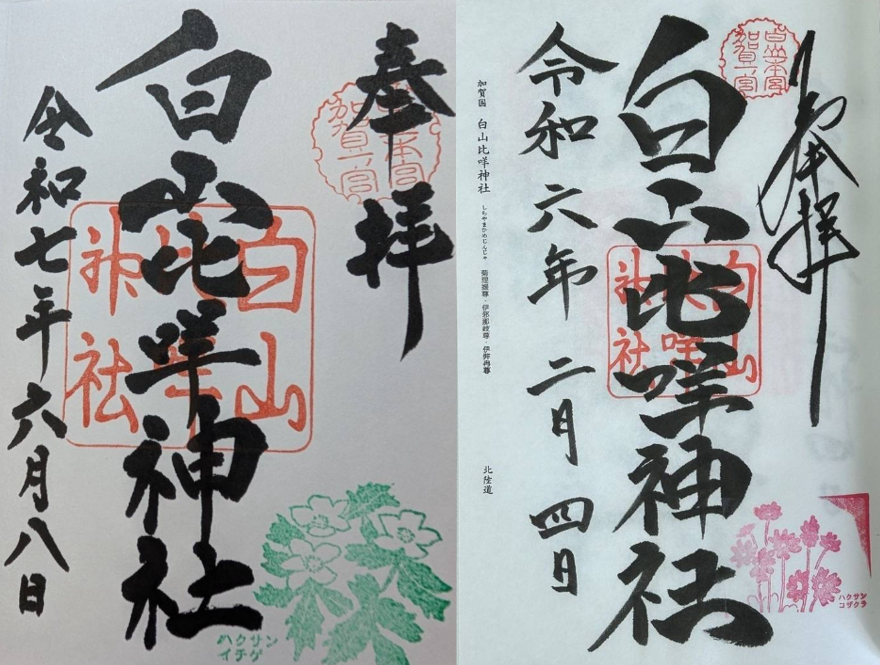 奉拝
白山本宮
加賀一宮
白山比咩神社
白山
比咩
神社
令和七年六月八日
ハクサン
イチゲ
奉拝
白山本宮
加賀一宮
白山比咩神社
白山
比咩
神社
ハクサン
コザクラ
令和六年二月四日
加賀国 白山比咩神社 しらやまひめじんじゃ 菊理媛尊・伊弉諾尊・伊弉冉尊 北陸道